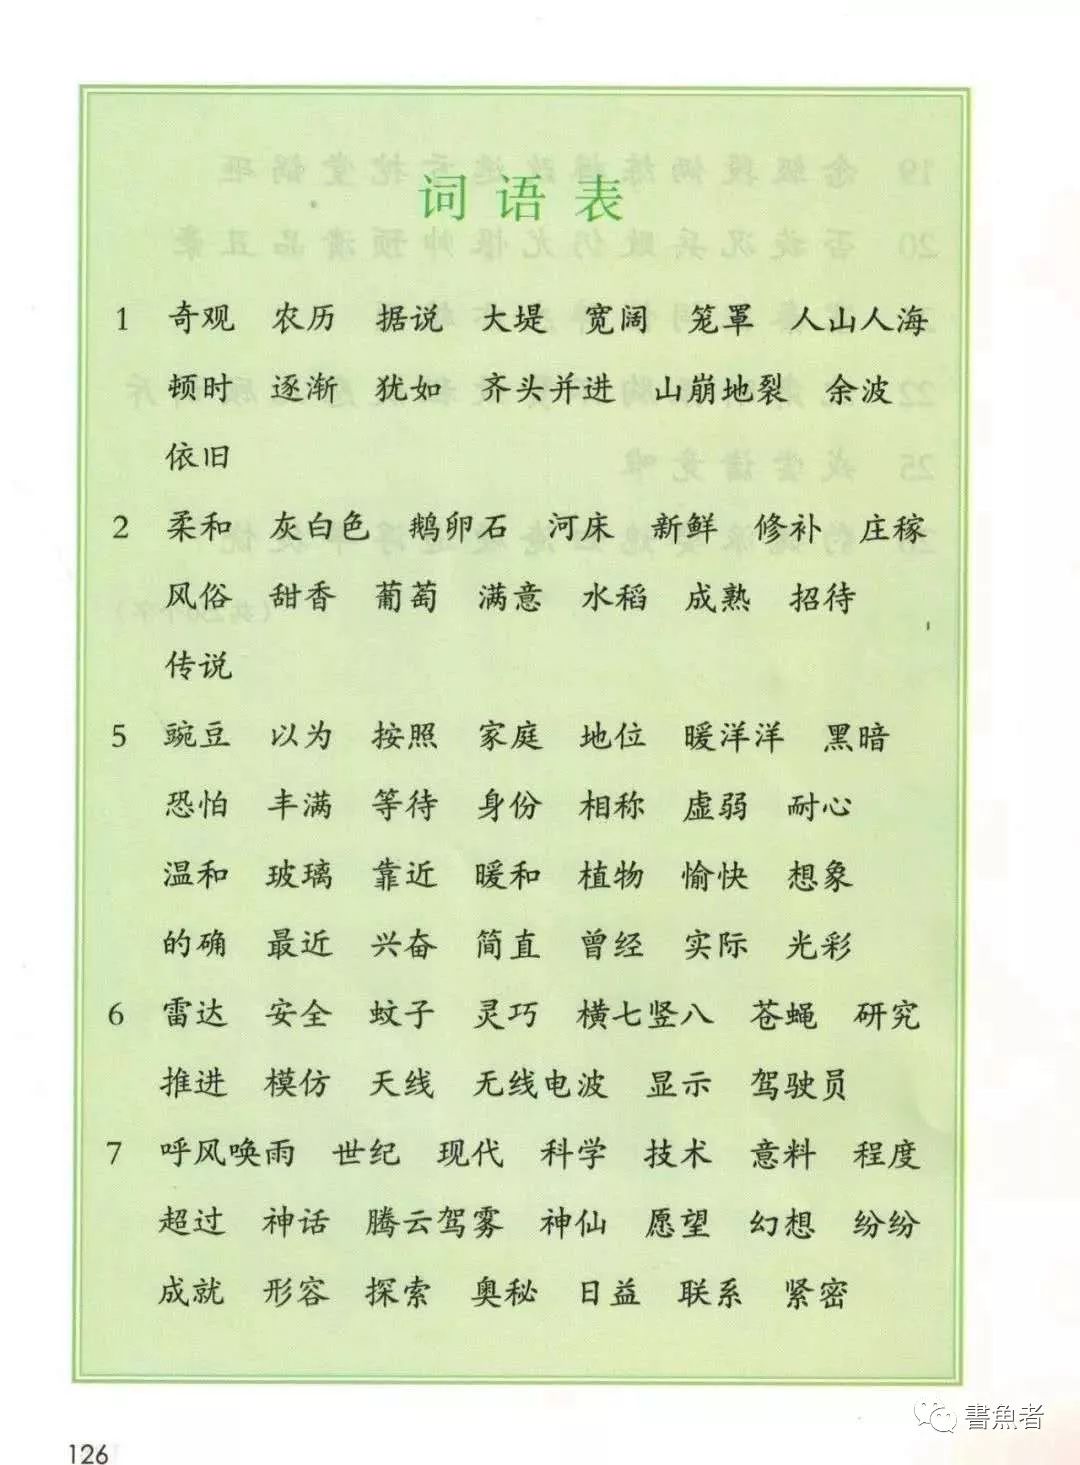 词语表
1 奇观 农历 据说 大堤 宽阔 笼罩 人山人海
顿时 逐渐 犹如 齐头并进 山崩地裂 余波
依旧
2 柔和 灰白色 鹅卵石 河床 新鲜 修补 庄稼
风俗 甜香 葡萄 满意 水稻 成熟 招待
传说
5 豌豆 以为 按照 家庭 地位 暖洋洋 黑暗
恐怕 丰满 等待 身份 相称 虚弱 耐心
温和 玻璃 靠近 暖和 植物 愉快 想象
的确 最近 兴奋 简直 曾经 实际 光彩
6 雷达 安全 蚊子 灵巧 横七竖八 苍蝇 研究
推进 模仿 天线 无线电波 显示 驾驶员
7 呼风唤雨 世纪 现代 科学 技术 意料 程度
超过 神话 腾云驾雾 神仙 愿望 幻想 纷纷
成就 形容 探索 奥秘 日益 联系 紧密
書魚者
126